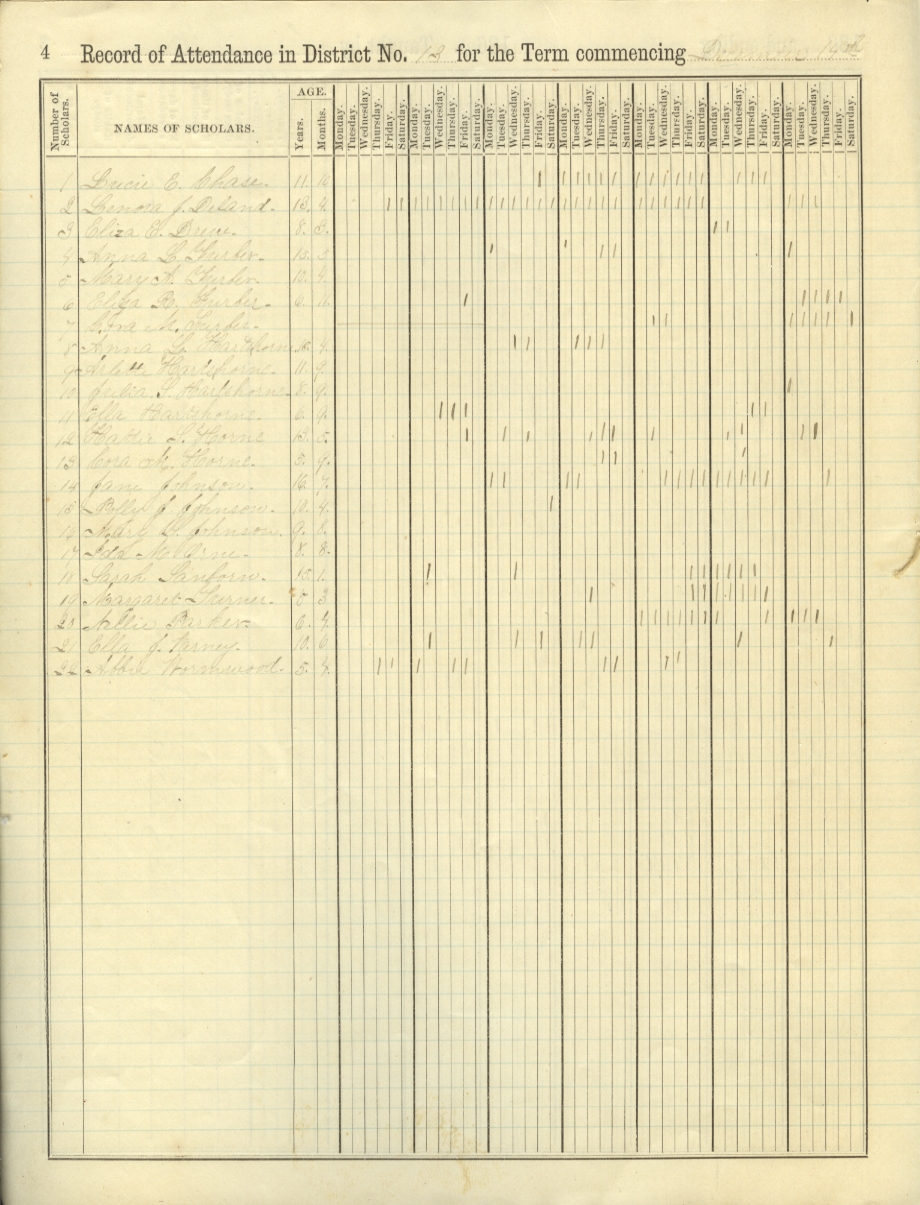 4 Record of Attendance in District No. 12 for the Term commencing
Number of Scholars. NAMES OF SCHOLARS. AGE. Years. Months. Monday. Tuesday. Wednesday. Thursday. Friday. Saturday. Monday. Tuesday. Wednesday. Thursday. Friday. Saturday. Monday. Tuesday. Wednesday. Thursday. Friday. Saturday. Monday. Tuesday. Wednesday. Thursday. Friday. Saturday. Monday. Tuesday. Wednesday. Thursday. Friday. Saturday. Monday. Tuesday. Wednesday. Thursday. Friday. Saturday. Monday. Tuesday. Wednesday. Thursday. Friday. Saturday.
1 Lucie E. Chase. 11.
2 Lenora J. Deland. 13. 4.
3 Eliza 8. 3.
4 Anna L. Furber.
5 Mary A. Furber.
6 Furber. 6. 11.
7 Cora M. Furber.
8 Anna L. Hartshorn
9 Hartshorne. 11. 9.
10 Julia S. Hartshorne. 8. 9.
11 Ella Hartshorne. 6. 9.
12 Hattie S. Horne 13. 5.
13 Cora M. Horne. 5. 9.
14 Jane Johnson. 16. 7.
15 Polly J. Johnson. 10. 4.
16 Mary Johnson. 9. 8.
17 Ida M. Orne. 8. 8.
18 Sarah Sanborn. 15. 1.
19 Margaret 8 3
20 Nellie Parker. 6. 4.
21 Ella J. Varney. 10. 6
22 Abbie Wormwood. 5. 4.